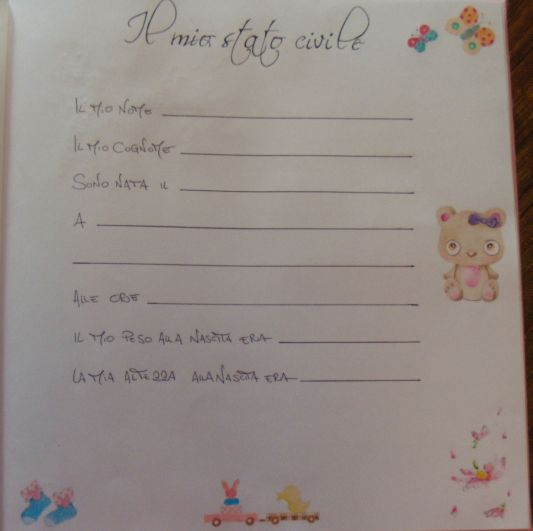 Il mio stato civile
IL MIO NOME
IL MIO COGNOME
SONO NATA IL
A
ALLE ORE
IL MIO PESO ALLA NASCITA ERA
LA MIA ALTEZZA ALLA NASCITA ERA